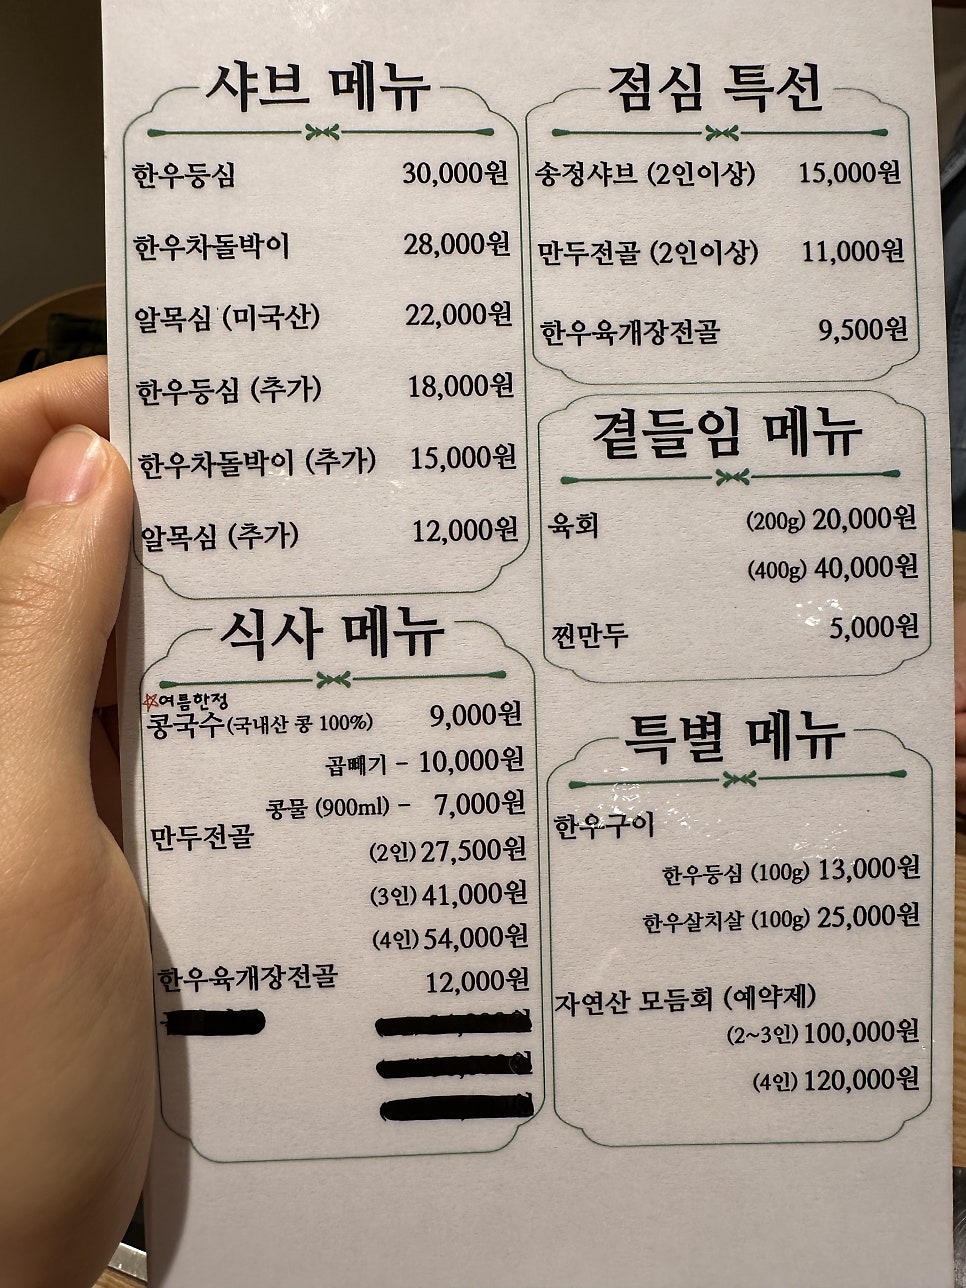 샤브 메뉴
한우등심 30,000원
한우차돌박이 28,000원
알목심 (미국산) 22,000원
한우등심 (추가) 18,000원
한우차돌박이 (추가) 15,000원
알목심 (추가) 12,000원
식사 메뉴
☆여름한정
콩국수(국내산 콩 100%) 9,000원
곱빼기 - 10,000원
콩물 (900ml) - 7,000원
만두전골
(2인) 27,500원
(3인) 41,000원
(4인) 54,000원
한우육개장전골 12,000원
점심 특선
송정샤브 (2인이상) 15,000원
만두전골 (2인이상) 11,000원
한우육개장전골 9,500원
곁들임 메뉴
육회 (200g) 20,000원
(400g) 40,000원
찐만두 5,000원
특별 메뉴
한우구이
한우등심 (100g) 13,000원
한우살치살 (100g) 25,000원
자연산 모듬회 (예약제)
(2~3인) 100,000원
(4인) 120,000원